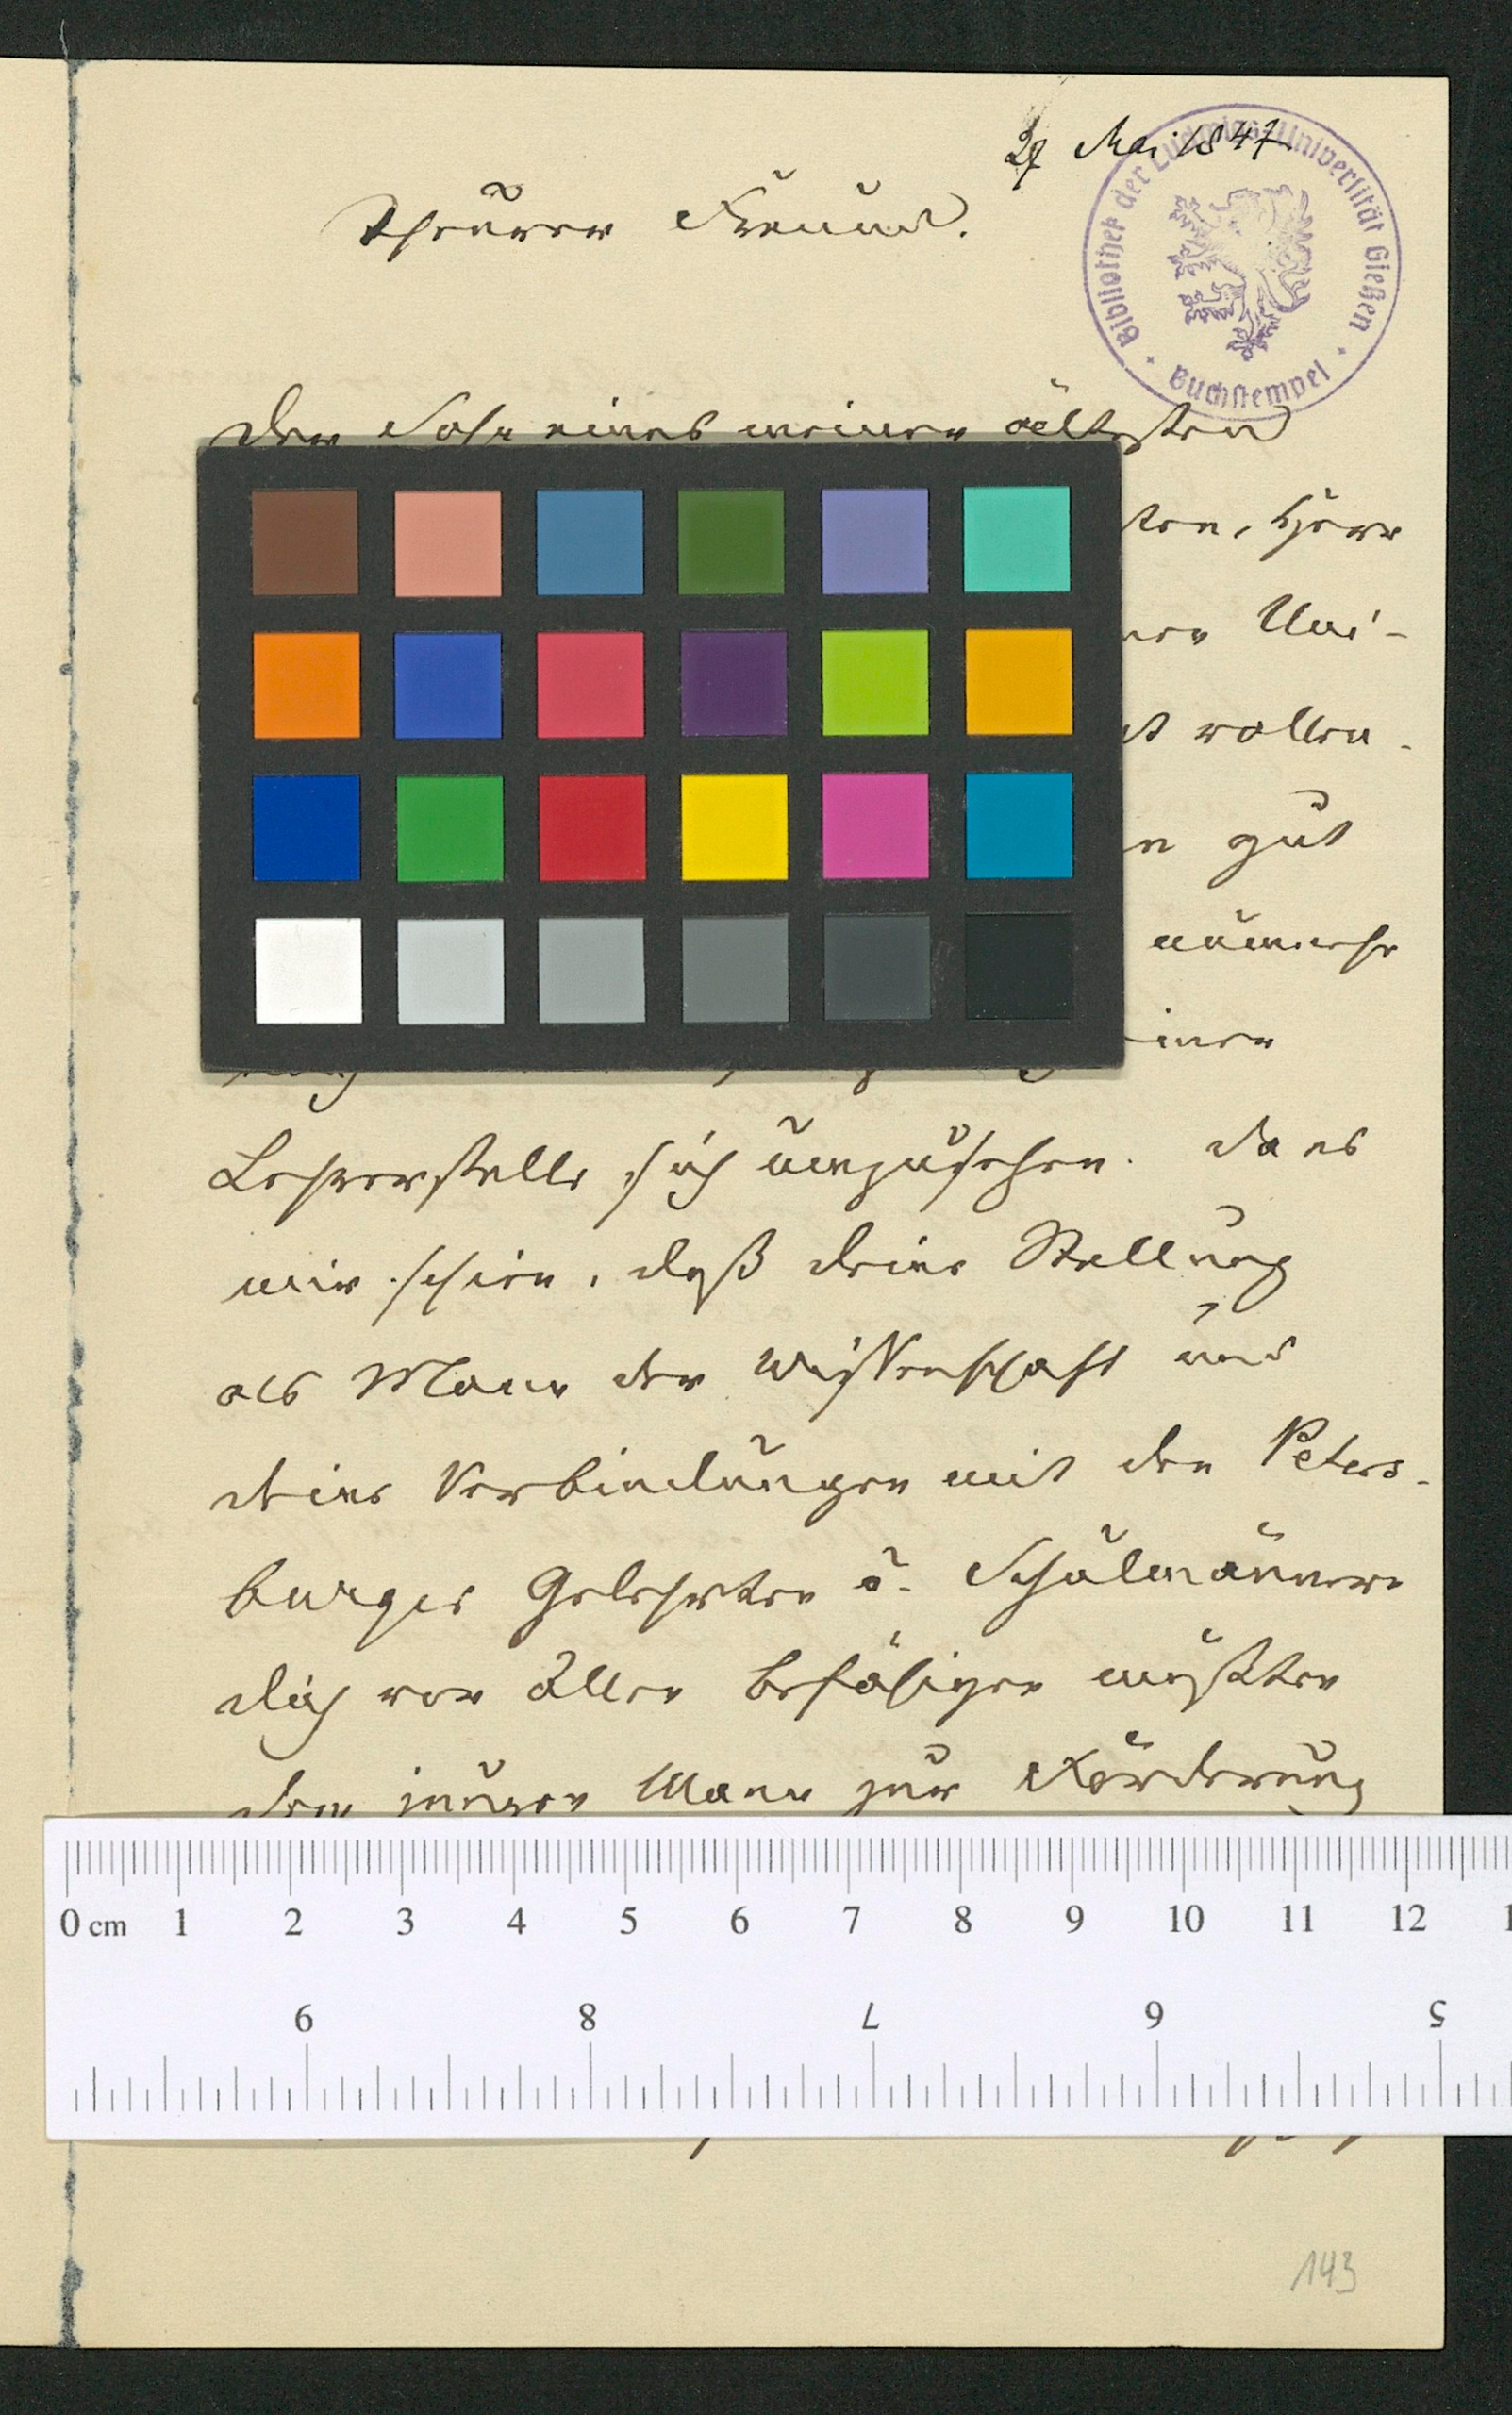 27 Mai 1847
Bibliothek der Ludwigs-Universität Gießen
Buchstempel
Theurer Freund.
Der Sohn eines meiner ältesten
ten, Herr
Uni-
vollen-
gut
nunmehr
einer
Lehrerstelle sich umzusehen. Da es
mir schien, daß deine Stellung
als Mann der Wissenschaft und
deine Verbindungen mit den Peters-
burger Gelehrten u. Schulmännern
dich vor Allen befähigen müßten
dem jungen Mann zur Förderung
0 cm 1 2 3 4 5 6 7 8 9 10 11 12 1
9 8 7 6 5
143